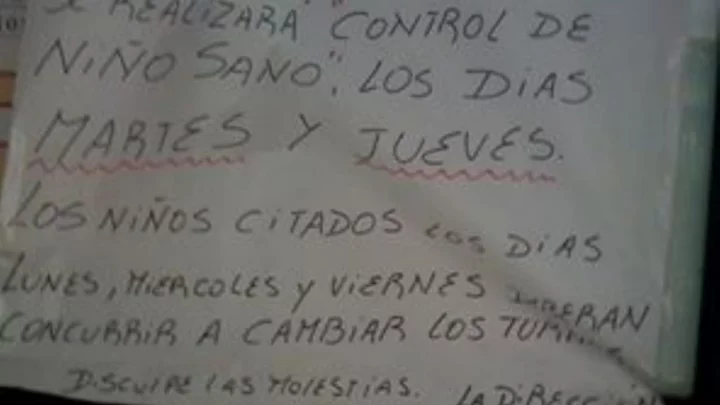 SE REALIZARÁ "CONTROL DE
NIÑO SANO", LOS DIAS
MARTES Y JUEVES.
LOS NIÑOS CITADOS LOS DIAS
LUNES, MIERCOLES Y VIERNES DEBERAN
CONCURRIR A CAMBIAR LOS TURNOS.
DISCULPE LAS MOLESTIAS. LA DIRECCIÓN